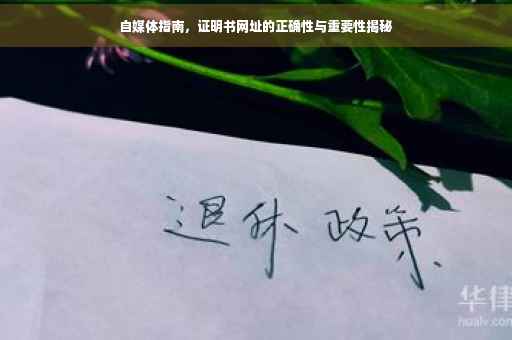 自媒体指南，证明书网址的正确性与重要性揭秘
退休 政策
华律
hualv.com